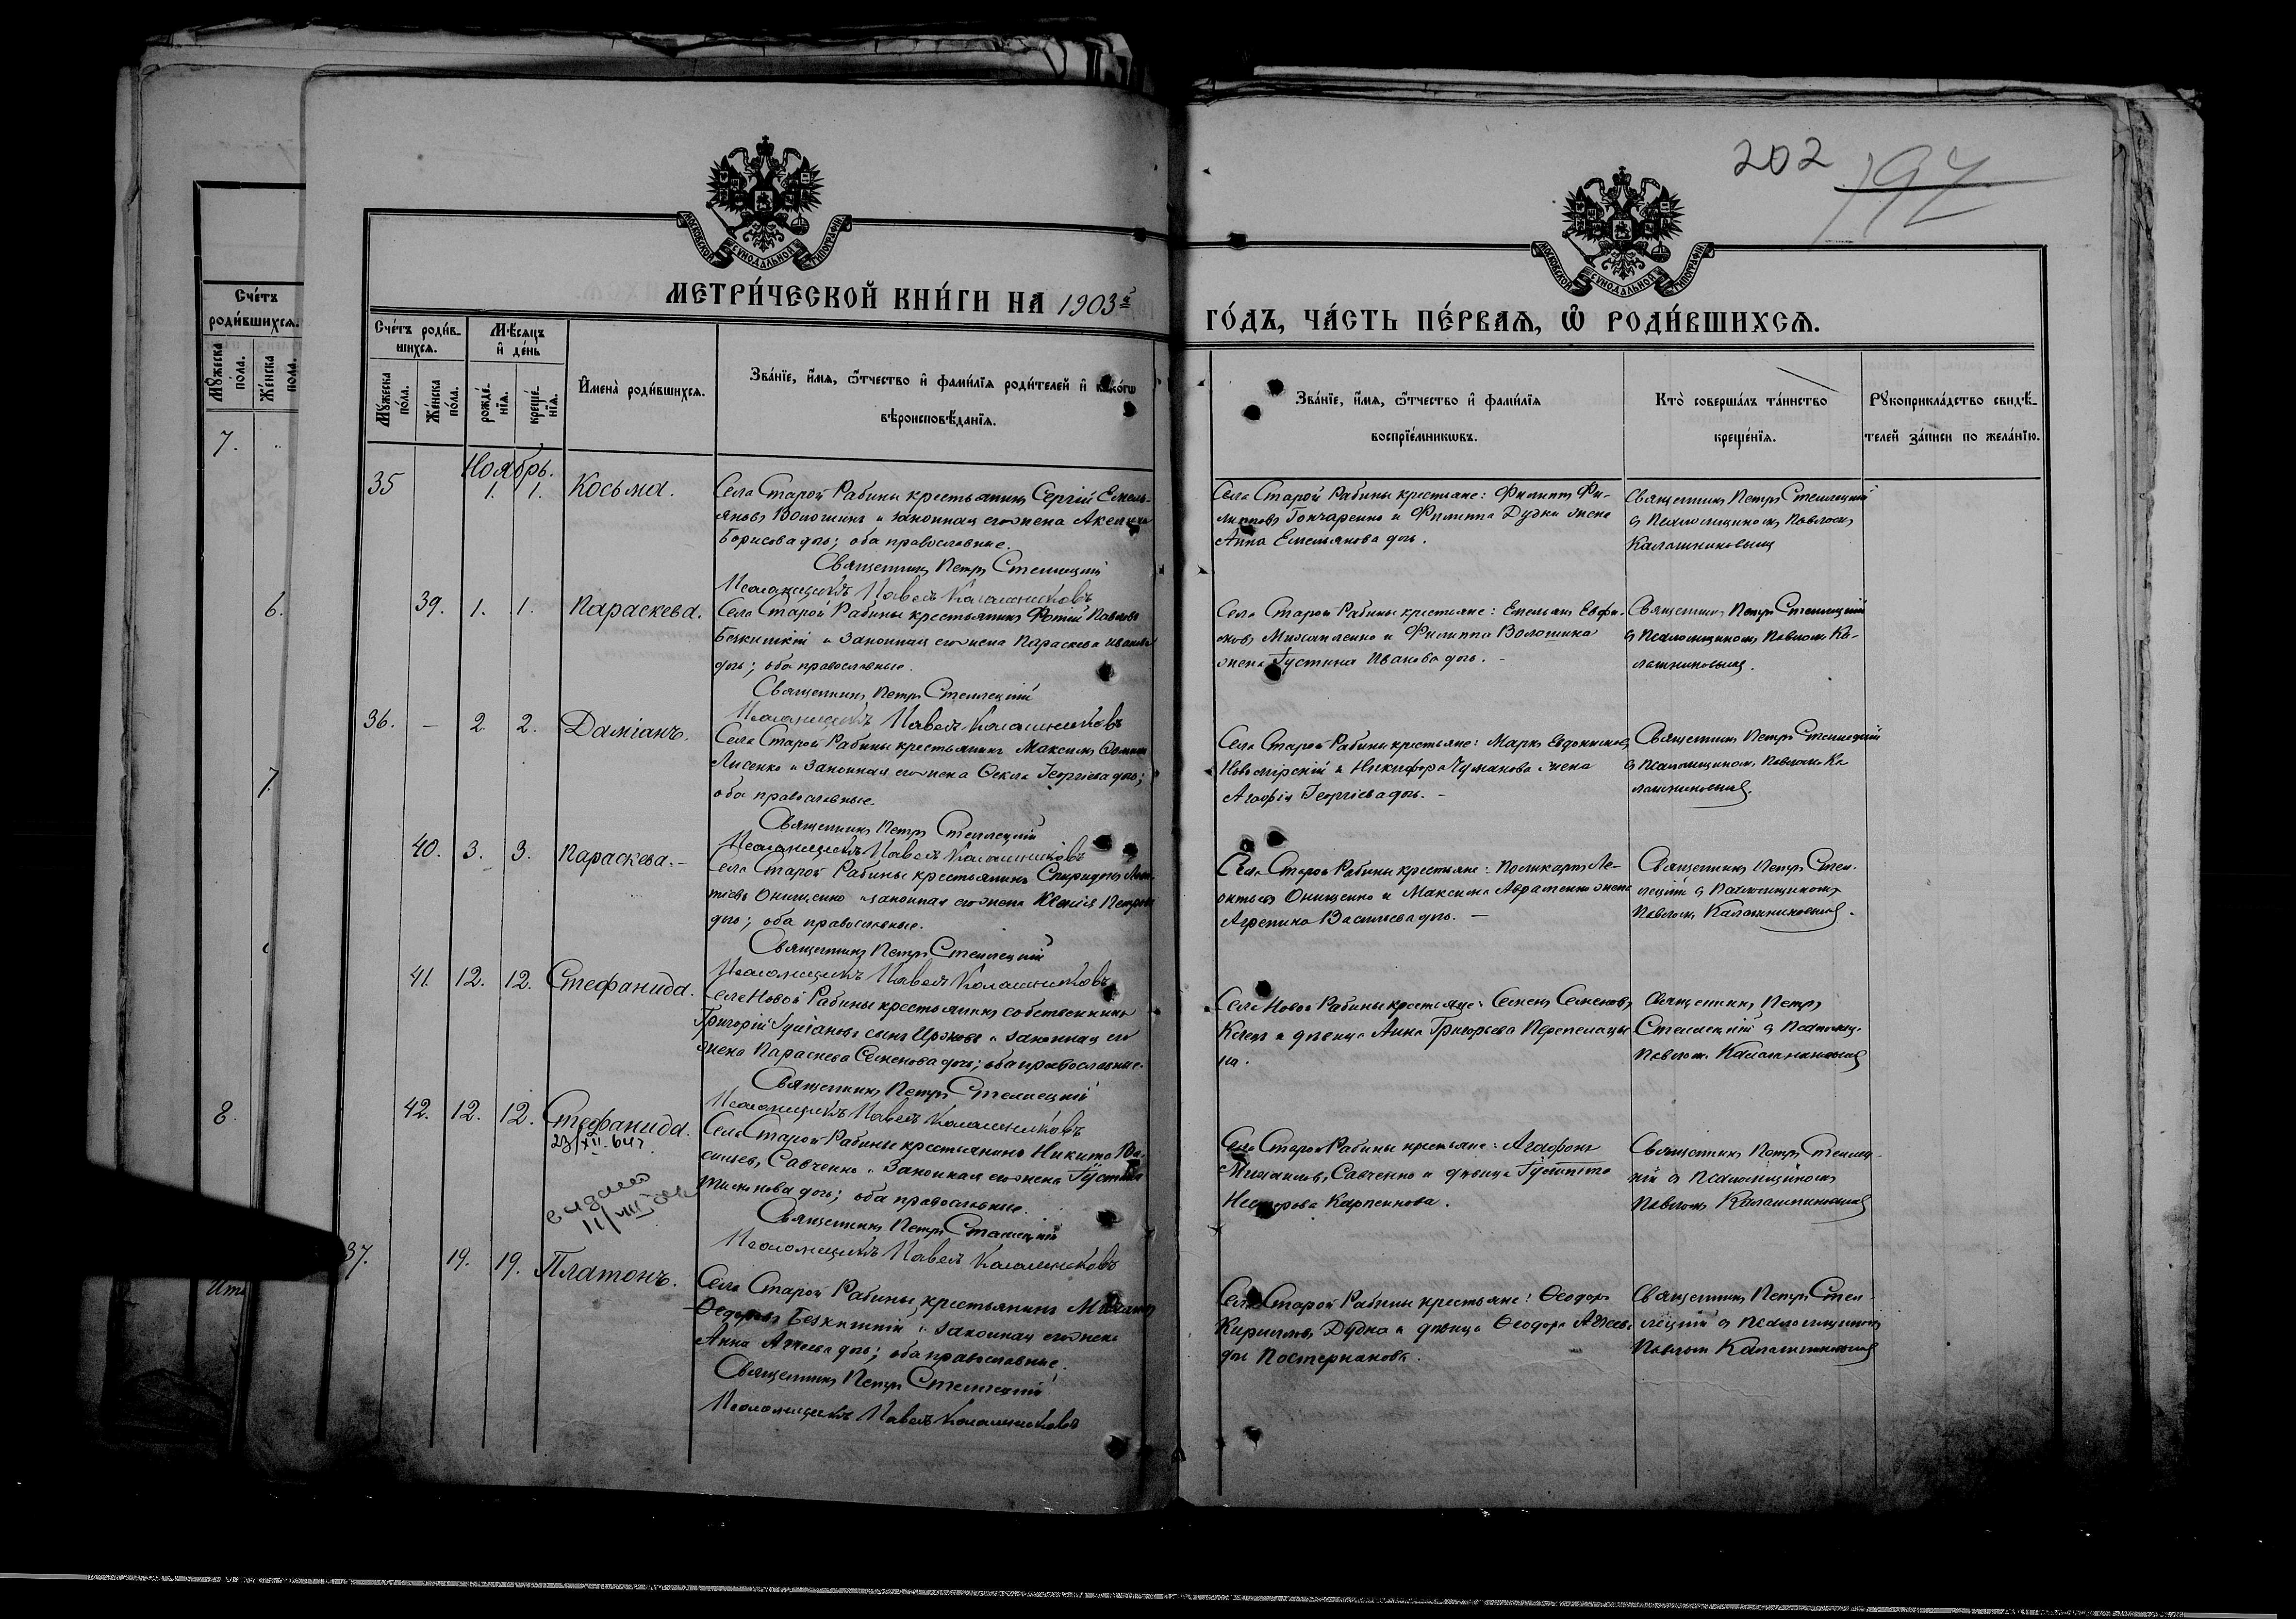 202
197
МОСКОВСКОЙ СѴНОДАЛЬНОЙ ТИПОГРАФІИ
МОСКОВСКОЙ СѴНОДАЛЬНОЙ ТИПОГРАФІИ
МЕТРИ́ЧЕСКОЙ КНИ́ГИ НА 1903й
ГО́ДЪ, ЧА́СТЬ ПЕ́РВАѦ, Ѽ РОДИ́ВШИХСѦ.
Сче́тъ
роди́вшихсѧ.
Мꙋ́жеска по́ла.
Же́нска пола.
7.
6.
7.
8.
Ито
Сче́тъ роди́в-
шихсѧ.
Мꙋ́жеска по́ла.
Же́нска по́ла.
Мѣ́сѧцъ
и҆ де́нь
рожде́нїѧ.
креще́нїѧ.
И҆мена̀ роди́вшихсѧ.
Зва́нїе, и҆́мѧ, ѻ҆́тчество и҆ фами́лїѧ роди́телей и҆ како́гѡ
вѣроисповѣ́данїѧ.
Зва́нїе, и҆́мѧ, ѻ҆́тчество и҆ фами́лїѧ
воспрїе́мникѡвъ.
Кто̀ соверша́лъ та́инство
креще́нїѧ.
Рꙋкоприкла́дство свидѣ́-
телей за́писи по жела́нїю.
Ноябрь.
35 1. 1. Косьма.
Села Старой Рабины крестьянинъ Сергій Емель-
яновъ Волошинъ и законная его жена Аксенія
Борисова дочь; оба православные.
Священникъ Петръ Стеллецкій
Псаломщикъ Павелъ Калашниковъ
Села Старой Рабины крестьяне: Филиппъ Фи-
липповъ Гончаренко и Филиппа Дудки жена
Анна Емельянова дочь.
Священникъ Петръ Стеллецкій
съ Псаломщикомъ Павломъ
Калашниковымъ
39. 1. 1. Параскева.
Села Старой Рабины крестьянинъ Фотій Павловъ
Безкишкій и законная его жена Параскева Иванова
дочь; оба православные.
Священникъ Петръ Стеллецкій
Псаломщикъ Павелъ Калашниковъ
Села Старой Рабины крестьяне: Емельянъ
Михайленко и Филиппа Волошина
жена Густина Иванова дочь. -
Священникъ Петръ Стеллецкій
съ Псаломщикомъ Павломъ Ка-
лашниковымъ.
36. - 2. 2. Даміанъ.
Села Старой Рабины крестьянинъ Максимъ
Лисенко и законная его жена Ѳекла Георгіева дочь;
оба православные.
Священникъ Петръ Стеллецкій
Псаломщикъ Павелъ Калашниковъ
Села Старой Рабины крестьяне: Маркъ Евдокимовъ
Новомірскій и Никифора Чумакова жена
Агафія Георгіева дочь. -
Священникъ Петръ Стеллецкій
съ Псаломщикомъ Павломъ Ка
лашниковымъ.
40. 3. 3. Параскева. -
Села Старой Рабины крестьянинъ Спиридонъ Леон-
тіевъ Онищенко и законная его жена Ксенія Петрова
дочь; оба православные.
Священникъ Петръ Стеллецкій
Псаломщикъ Павелъ Калашниковъ
Села Старой Рабины крестьяне: Поликарпъ Ле-
онтьевъ Онищенко и Максима Авраменко жена
Агрепина Васильева дочь. -
Священникъ Петръ Стел-
лецкій съ Псаломщикомъ
Павломъ Калашниковымъ.
41. 12. 12. Стефанида.
Села Новой Рабины крестьянинъ собственникъ
Григорій сынъ и законная его
жена Параскева Семенова дочь; оба православные.
Священникъ Петръ Стеллецкій
Псаломщикъ Павелъ Калашниковъ
Села Новой Рабины крестьяне: Семенъ Семеновъ
и дѣвица Анна Григорьева Перепелицы
на.
Священникъ Петръ
Стеллецкій съ Псаломщи.
Павломъ Калашниковымъ
42. 12. 12. Стефанида.
23/XII-64 г.
выдано
11/VIII
Села Старой Рабины крестьянинъ Никита Ва-
сильевъ Савченко и законная его жена Густина
дочь; оба православные.
Священникъ Петръ Стеллецкій
Псаломщикъ Павелъ Калашниковъ
Села Старой Рабины крестьяне: Агафонъ
Михаиловъ Савченко и дѣвица
Несторова Карпенкова.
Священникъ Петръ Стеллец-
кій съ Псаломщикомъ
Павломъ Калашниковымъ
37. 19. 19. Платонъ.
Села Старой Рабины крестьянинъ Михаилъ
Ѳедоровъ Безкишкій и законная его жена
Анна дочь; оба православные.
Священникъ Петръ Стеллецкій
Псаломщикъ Павелъ Калашниковъ
Села Старой Рабины крестьяне: Ѳеодоръ
Кирилловъ Дудка и дѣвица Ѳеодора
дочь Постернакова.
Священникъ Петръ Стел-
лецкій съ Псаломщикомъ
Павломъ Калашниковымъ